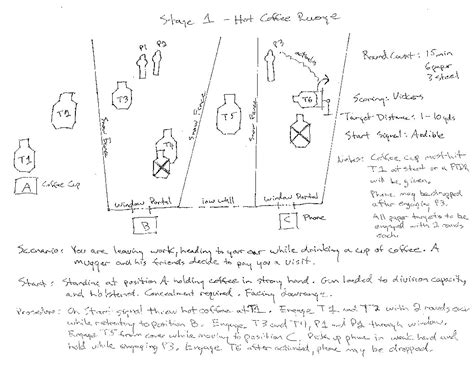 Stage 1 - Hot Coffee Revenge
P1 P2
P3
activates
Round Count: 15 min
6 paper
3 steel
Scoring: Vickers
Target Distance: 1-10 yds
Start Signal: Audible
Notes: Coffee cup must hit
T1 at start or a FTDR
will be given.
Phone may be dropped
after engaging P3.
All paper targets to be
engaged with 2 rounds
each.
T1
T2
T3
T4
T5
T6
Snow Fence
Snow Fence
Snow Fence
A Coffee Cup
window Portal low wall window Portal
B
C Phone
Scenario: You are leaving work, heading to your car while drinking a cup of coffee. A
mugger and his friends decide to pay you a visit.
Start: Standing at position A holding coffee in strong hand. Gun loaded to division capacity,
and holstered. Concealment required. Facing downrange.
Procedure: On Start signal throw hot coffee at T1. Engage T1 and T2 with 2 rounds each
while retreating to position B. Engage T3 and T4, P1 and P2 through window.
Engage T5 from cover while moving to position C. Pick up phone in weak hand and
hold while engaging P3. Engage T6 after activated, phone may be dropped.